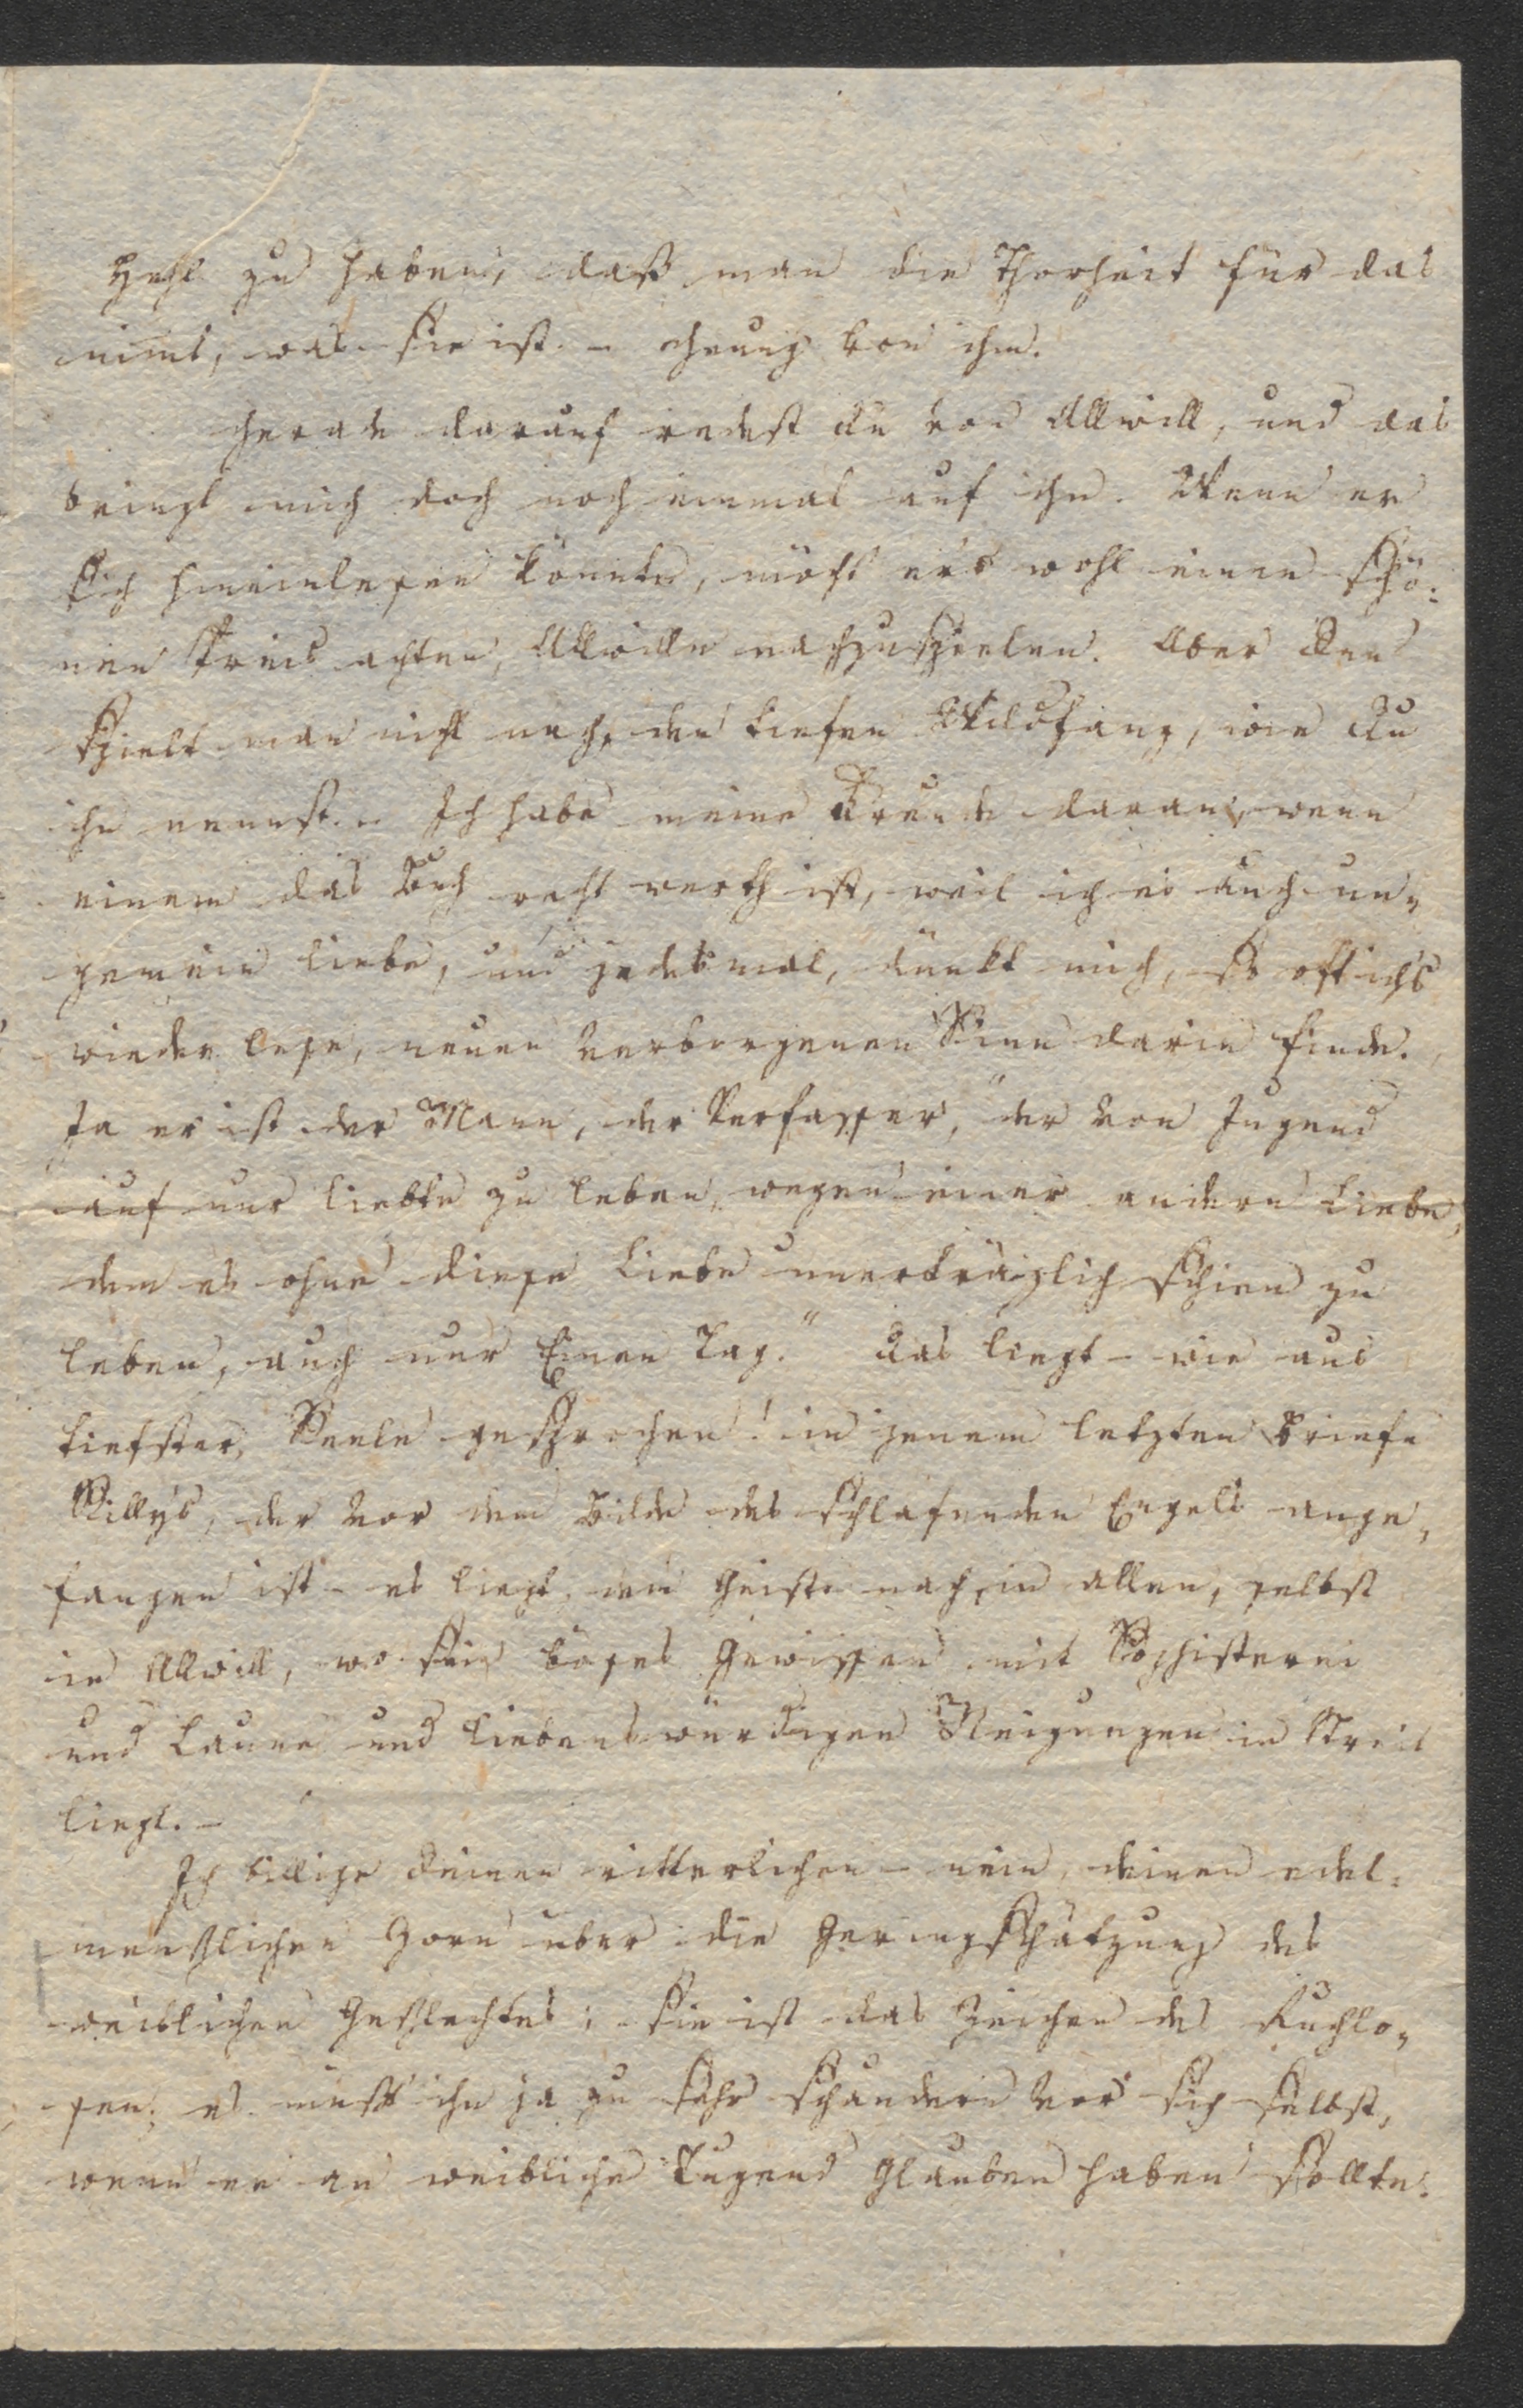 Hehl zu haben, daß man die Thorheit für das
nimt, was sie ist. – Genug von ihm.
Gerade darauf redest du von Allwill, und das
bringt mich doch noch einmal auf ihn. Wenn er
sich hineinlesen könnte, möcht er's wohl einen schö-
nen Preis achten, Allwilln nachzuspielen. Aber den
spielt man nicht nach, den tiefen Wildfang, wie du
ihn nennst. – Ich habe meine Freude daran, wenn
einem das Buch recht werth ist, weil ich es auch un-
gemein liebe, und jedesmal, dünkt mich, so oft ichs
wieder lese, neuen verborgenen Sinn darin finde.
Ja er ist der Mann, der Verfasser, „der von Jugend
auf nur liebte zu leben, wegen einer andern Liebe,
dem es ohne diese Liebe unerträglich schien zu
leben, auch nur Einen Tag.“ Das liegt – wie aus
tiefster Seele gesprochen! in jenem letzten Briefe
Sillys, der vor dem Bilde des schlafenden Engels ange-
fangen ist – es liegt, dem Geiste nach, in allen, selbst
in Allwill, wo sein böses Gewissen mit Sophisterei
und Laune und liebenswürdigen Neigungen in Streit
liegt. –
Ich billige deinen ritterlichen – nein, deinen edel-
menschlichen Zorn über die Geringschätzung des
weiblichen Geschlechtes; sie ist das Zeichen des Ruchlo-
sen; es müßt ihn ja zu sehr schaudern vor sich selbst,
wenn er an weibliche Tugend Glauben haben sollte.